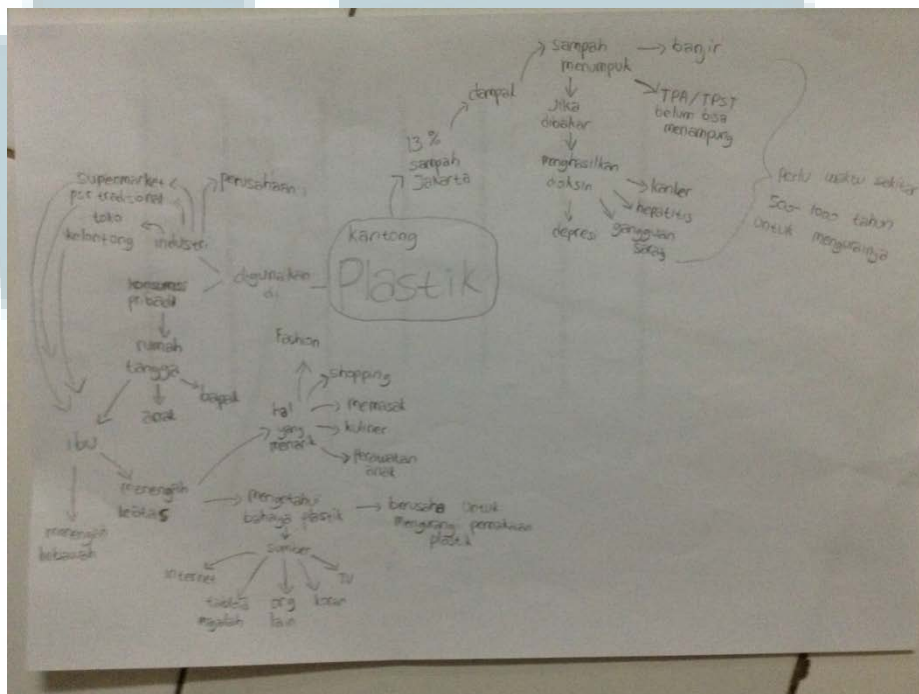 kantong
Plastik
13%
sampah
Jakarta
dampak
sampah
menumpuk
banjir
TPA/TPST
belum bisa
menampung
Jika
dibakar
menghasilkan
dioksin
kanker
hepatitis
gangguan
saraf
depresi
Perlu waktu sekitar
500-1000 tahun
untuk mengurainya
digunakan
di
industri
perusahaan
supermarket
psr tradisional
toko
kelontong
konsumsi
pribadi
rumah
tangga
bapak
anak
ibu
menengah
kebawah
menengah
keatas
hal
yang
menarik
Fashion
shopping
memasak
kuliner
Perawatan
anak
mengetahui
bahaya plastik
berusaha untuk
mengurangi pemakaian
plastik
sumber
internet
tabloid
majalah
org
lain
koran
TV